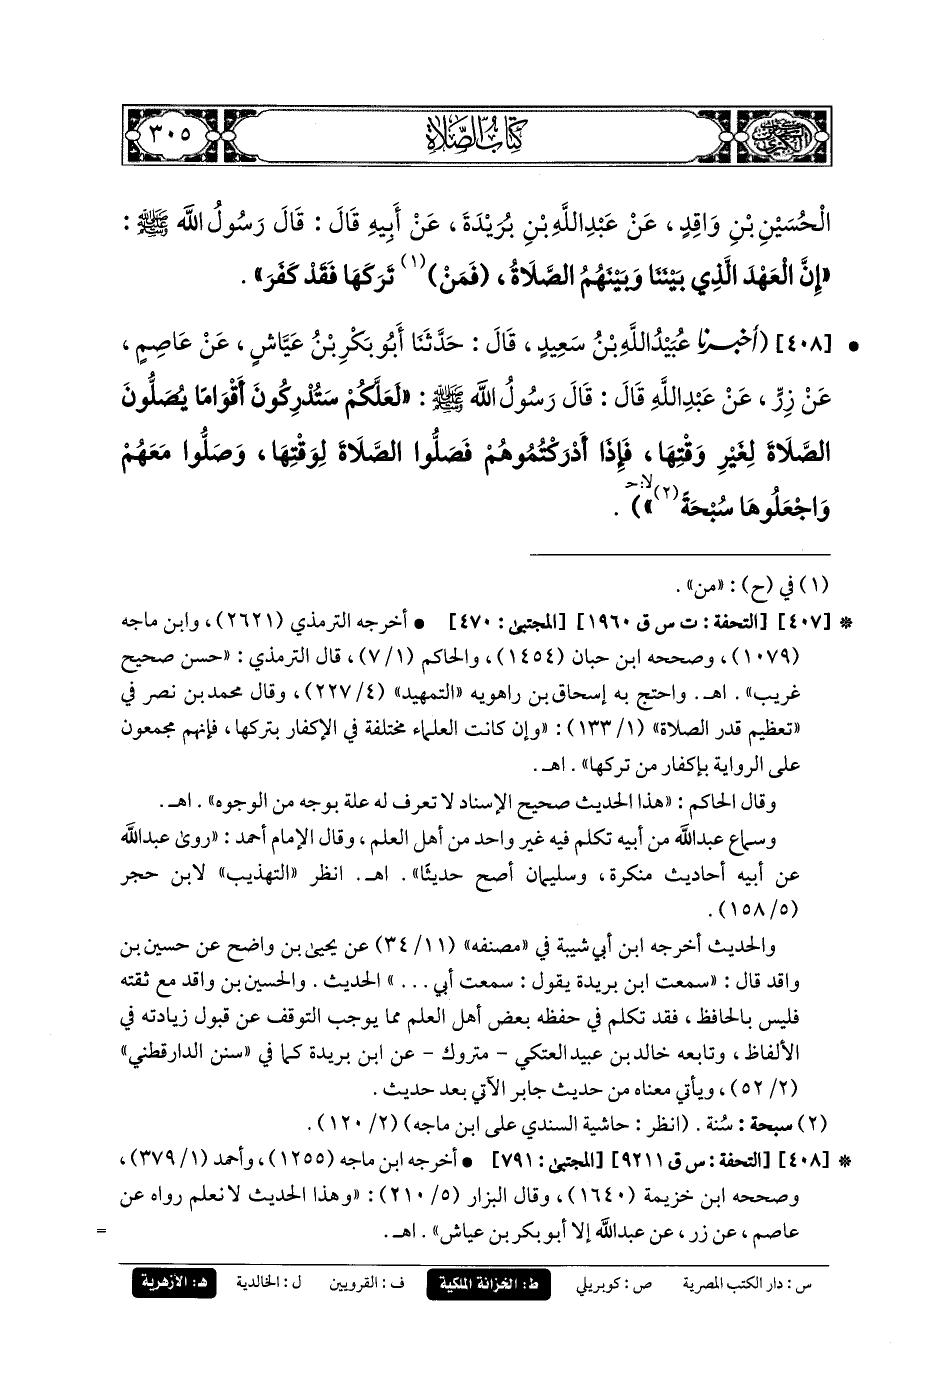 ٣٠٥
كتاب الصلاة
السنن الكبرى
الْحُسَيْنِ بْنِ وَاقِدٍ ، عَنْ عَبْدِاللَّهِ بْنِ بُرَيْدَةَ ، عَنْ أَبِيهِ قَالَ : قَالَ رَسُولُ اللَّه ﷺ :
«إِنَّ الْعَهْدَ الَّذِي بَيْنَنَا وَبَيْنَهُمُ الصَّلَاةُ ، (فَمَنْ)(١) تَرَكَهَا فَقَدْ كَفَرَ» .
• [٤٠٨] (أخبرنا عُبَيْدُاللَّهِ بْنُ سَعِيدٍ ، قَالَ : حَدَّثَنَا أَبُو بَكْرِ بْنُ عَيَّاشٍ ، عَنْ عَاصِمٍ ،
عَنْ زِرٍّ ، عَنْ عَبْدِاللَّهِ قَالَ : قَالَ رَسُولُ اللَّه ﷺ : «لَعَلَّكُمْ سَتُدْرِكُونَ أَقْوَامًا يُصَلُّونَ
الصَّلَاةَ لِغَيْرِ وَقْتِهَا ، فَإِذَا أَدْرَكْتُمُوهُمْ فَصَلُّوا الصَّلَاةَ لِوَقْتِهَا ، وَصَلُّوا مَعَهُمْ
وَاجْعَلُوهَا سُبْحَةً(٢)») .
(١) في (ح) : «من» .
* [٤٠٧] [التحفة : ت س ق ١٩٦٠] [المجتبى : ٤٧٠] • أخرجه الترمذي (٢٦٢١) ، وابن ماجه
(١٠٧٩) ، وصححه ابن حبان (١٤٥٤) ، والحاكم (٧/١) ، قال الترمذي : «حسن صحيح
غريب» . اهـ. واحتج به إسحاق بن راهويه «التمهيد» (٢٢٧/٤) ، وقال محمد بن نصر في
«تعظيم قدر الصلاة» (١٣٣/١) : «وإن كانت العلماء مختلفة في الإكفار بتركها ، فإنهم مجمعون
على الرواية بإكفار من تركها» . اهـ.
وقال الحاكم : «هذا الحديث صحيح الإسناد لا تعرف له علة بوجه من الوجوه» . اهـ.
وسماع عبدالله من أبيه تكلم فيه غير واحد من أهل العلم ، وقال الإمام أحمد : «روى عبدالله
عن أبيه أحاديث منكرة ، وسليمان أصح حديثًا» . اهـ. انظر «التهذيب» لابن حجر
(١٥٨/٥) .
والحديث أخرجه ابن أبي شيبة في «مصنفه» (٣٤/١١) عن يحيى بن واضح عن حسين بن
واقد قال : «سمعت ابن بريدة يقول : سمعت أبي . . . » الحديث . والحسين بن واقد مع ثقته
فليس بالحافظ ، فقد تكلم في حفظه بعض أهل العلم مما يوجب التوقف عن قبول زيادته في
الألفاظ ، وتابعه خالد بن عبيد العتكي - متروك - عن ابن بريدة كما في «سنن الدارقطني»
(٥٢/٢) ، ويأتي معناه من حديث جابر الآتي بعد حديث .
(٢) سبحة : سُنة . (انظر : حاشية السندي على ابن ماجه) (١٢٠/٢) .
* [٤٠٨] [التحفة : س ق ٩٢١١] [المجتبى : ٧٩١] • أخرجه ابن ماجه (١٢٥٥) ، وأحمد (٣٧٩/١) ،
وصححه ابن خزيمة (١٦٤٠) ، وقال البزار (٢١٠/٥) : «وهذا الحديث لا نعلم رواه عن
عاصم ، عن زر ، عن عبدالله إلا أبو بكر بن عياش» . اهـ.
=
س : دار الكتب المصرية ص : كوبريلي ط : الخزانة الملكية ف : القرويين ل : الخالدية هـ : الأزهرية